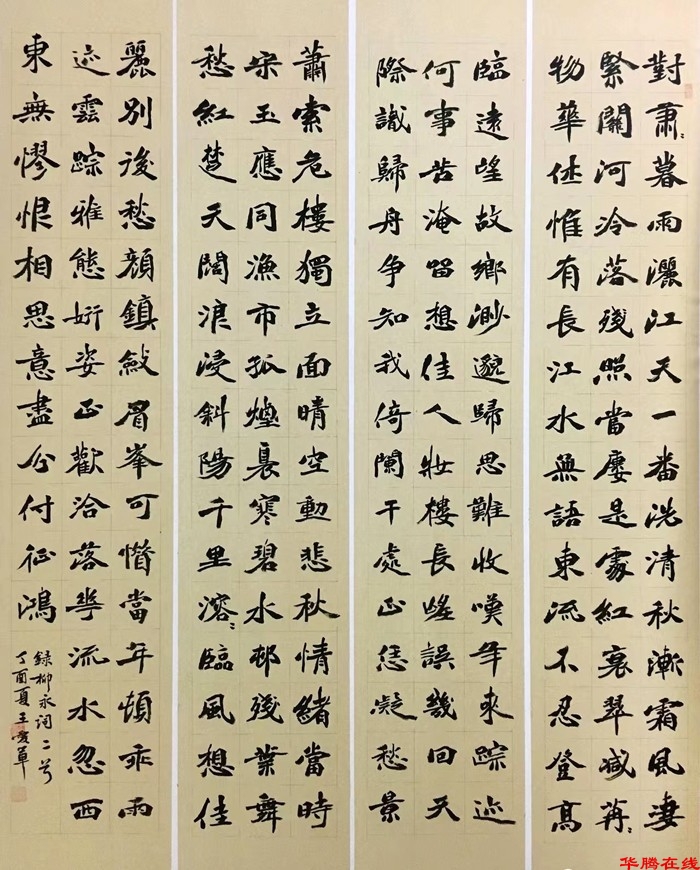 對蕭〻暮雨灑江天一番洗清秋漸霜風淒
緊關河冷落殘照當廔是處紅衰翠減苒〻
物華休惟有長江水無語東流不忍登高
臨遠望故鄉渺邈歸思難收嘆年來踪迹
何事苦淹留想佳人妝樓長誤幾回天
際識歸舟爭知我倚闌干處正恁凝愁景
蕭索危樓獨立面晴空動悲秋情緒當時
宋玉應同漁市孤煙裊寒碧水邨殘葉舞
愁紅楚天闊浪浸斜陽千里溶〻臨風想佳
麗別後愁顏鎮斂眉峯可惜當年頓乖雨
迹雲踪雅態妍姿正歡洽落花流水忽西
東無憀恨相思意盡分付征鴻
錄柳永詞二首
丁酉夏王愛
华腾在线